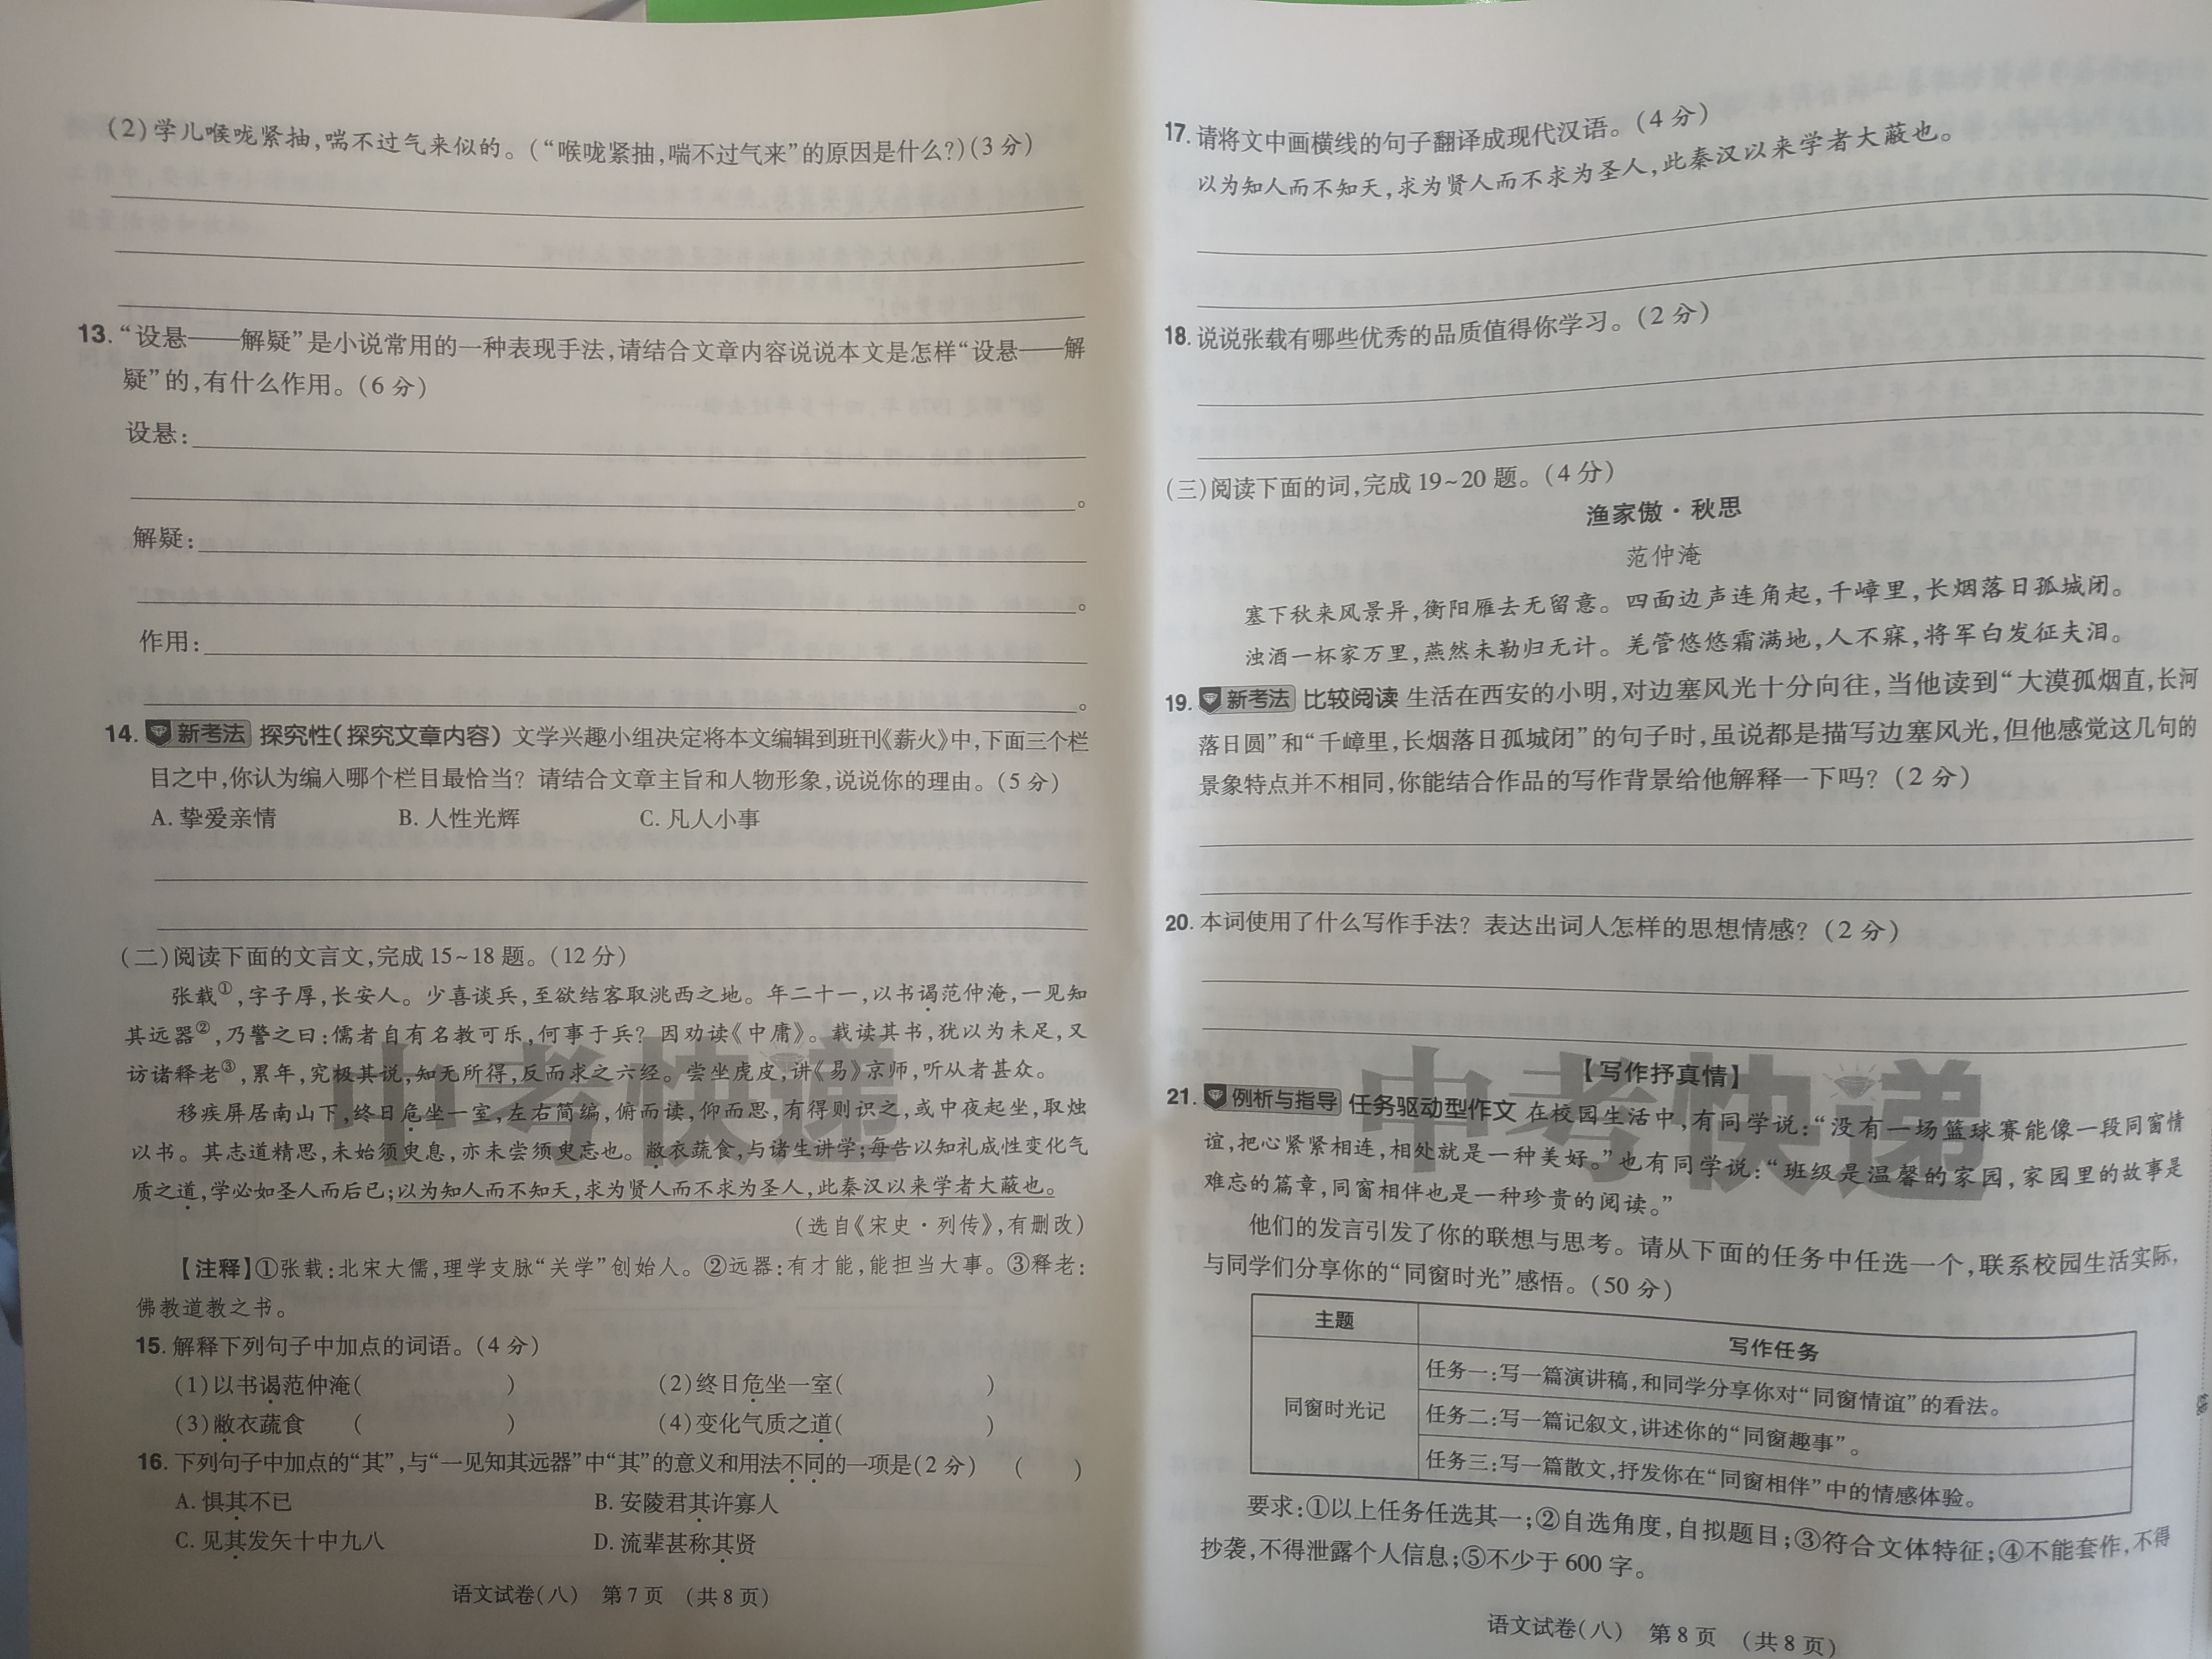 (2)学儿喉咙紧抽,喘不过气来似的。(“喉咙紧抽,喘不过气来”的原因是什么?)(3分)
13.“设悬——解疑”是小说常用的一种表现手法,请结合文章内容说说本文是怎样“设悬——解
疑”的,有什么作用。(6分)
设悬:
。
解疑:
。
作用:
。
14. 新考法 探究性(探究文章内容) 文学兴趣小组决定将本文编辑到班刊《薪火》中,下面三个栏
目之中,你认为编入哪个栏目最恰当? 请结合文章主旨和人物形象,说说你的理由。(5分)
A. 挚爱亲情 B. 人性光辉 C. 凡人小事
(二)阅读下面的文言文,完成15~18题。(12分)
张载①,字子厚,长安人。少喜谈兵,至欲结客取洮西之地。年二十一,以书谒范仲淹,一见知
其远器②,乃警之曰:儒者自有名教可乐,何事于兵? 因劝读《中庸》。载读其书,犹以为未足,又
访诸释老③,累年,究极其说,知无所得,反而求之六经。尝坐虎皮,讲《易》京师,听从者甚众。
移疾屏居南山下,终日危坐一室,左右简编,俯而读,仰而思,有得则识之,或中夜起坐,取烛
以书。其志道精思,未始须臾息,亦未尝须臾忘也。敝衣蔬食,与诸生讲学;每告以知礼成性变化气
质之道,学必如圣人而后已;以为知人而不知天,求为贤人而不求为圣人,此秦汉以来学者大蔽也。
(选自《宋史·列传》,有删改)
【注释】①张载:北宋大儒,理学支脉“关学”创始人。②远器:有才能,能担当大事。③释老:
佛教道教之书。
15. 解释下列句子中加点的词语。(4分)
(1)以书谒范仲淹( ) (2)终日危坐一室( )
(3)敝衣蔬食 ( ) (4)变化气质之道( )
16. 下列句子中加点的“其”,与“一见知其远器”中“其”的意义和用法不同的一项是(2分) ( )
A. 惧其不已 B. 安陵君其许寡人
C. 见其发矢十中九八 D. 流辈甚称其贤
语文试卷(八) 第7页 (共8页)
17. 请将文中画横线的句子翻译成现代汉语。(4分)
以为知人而不知天,求为贤人而不求为圣人,此秦汉以来学者大蔽也。
18. 说说张载有哪些优秀的品质值得你学习。(2分)
(三)阅读下面的词,完成19~20题。(4分)
渔家傲·秋思
范仲淹
塞下秋来风景异,衡阳雁去无留意。四面边声连角起,千嶂里,长烟落日孤城闭。
浊酒一杯家万里,燕然未勒归无计。羌管悠悠霜满地,人不寐,将军白发征夫泪。
19. 新考法 比较阅读 生活在西安的小明,对边塞风光十分向往,当他读到“大漠孤烟直,长河
落日圆”和“千嶂里,长烟落日孤城闭”的句子时,虽说都是描写边塞风光,但他感觉这几句的
景象特点并不相同,你能结合作品的写作背景给他解释一下吗? (2分)
20. 本词使用了什么写作手法? 表达出词人怎样的思想情感? (2分)
【写作抒真情】
21. 例析与指导 任务驱动型作文 在校园生活中,有同学说:“没有一场篮球赛能像一段同窗情
谊,把心紧紧相连,相处就是一种美好。”也有同学说:“班级是温馨的家园,家园里的故事是
难忘的篇章,同窗相伴也是一种珍贵的阅读。”
他们的发言引发了你的联想与思考。请从下面的任务中任选一个,联系校园生活实际,
与同学们分享你的“同窗时光”感悟。(50分)
主题 写作任务
同窗时光记
任务一:写一篇演讲稿,和同学分享你对“同窗情谊”的看法。
任务二:写一篇记叙文,讲述你的“同窗趣事”。
任务三:写一篇散文,抒发你在“同窗相伴”中的情感体验。
要求:①以上任务任选其一;②自选角度,自拟题目;③符合文体特征;④不能套作,不得
抄袭,不得泄露个人信息;⑤不少于600字。
语文试卷(八) 第8页 (共8页)
中考快递
中考快递